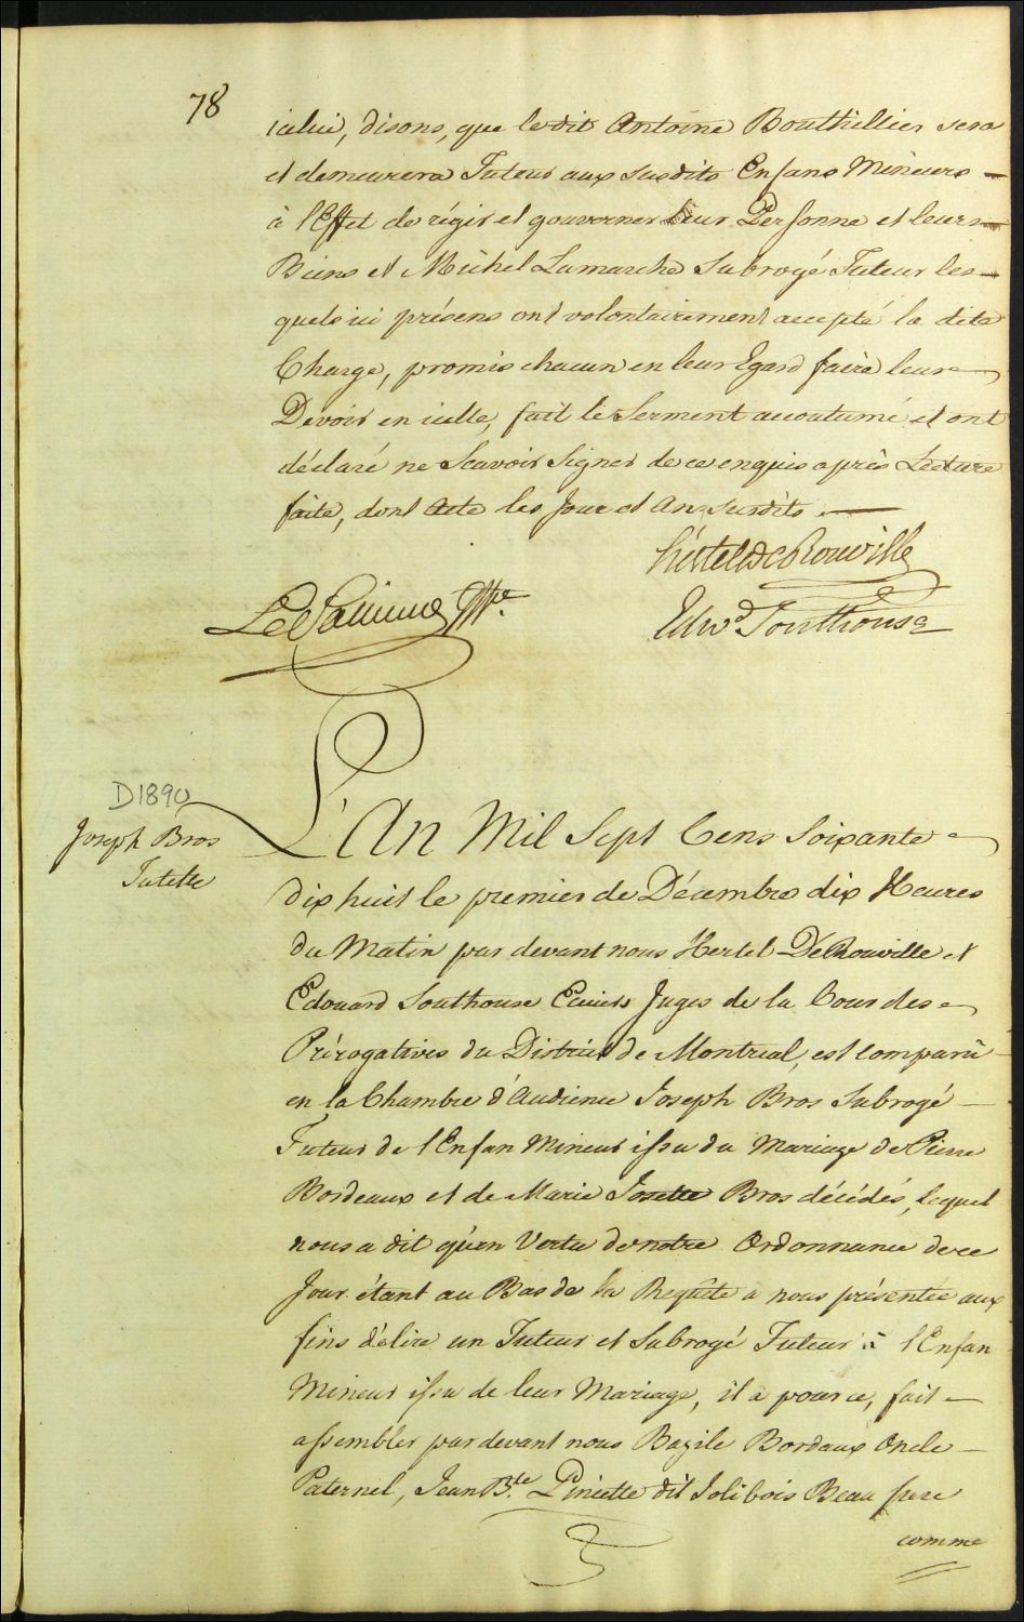 78
icelui, disons, que ledit Antoine Bouthillier sera
et demeurera Tuteur aux susdits Enfans Mineurs
à l'Effet de régir et gouverner leur Personne et leurs
Biens et Michel Lamarche Subrogé Tuteur les-
quels ici présens ont volontairement accepté la dite
Charge, promis chacun en leur Egard faire leur
Devoir en icelle, fait le Serment accoutumé et ont
déclaré ne Scavoir Signer de ce enquis après Lecture
faite, dont Acte les Jour et An susdits.
hertel DeRouville
Edwd. Southouse
L'An Mil Sept Cens Soixante
D1890
Joseph Bros
Tutelle
dix huit le premier de Décembre dix Heures
du Matin par devant nous Hertel DeRouville et
Edouard Southouse Ecuiers Juges de la Cour des
Prérogatives du District de Montreal, est comparû
en la Chambre d'Audience Joseph Bros Subrogé
Tuteur de l'Enfan Mineur issu du Mariage de Pierre
Bordeaux et de Marie Josette Bros décédés, lequel
nous a dit qu'en Vertu de notre Ordonnance de ce
Jour étant au Bas de la Requête a nous présentée aux
fins d'élire un Tuteur et Subrogé Tuteur à l'Enfan
Mineur issu de leur Mariage, il a pour ce, fait
assembler par devant nous Bazile Bordaux Oncle
Paternel, Jean Bte. Piniette dit Jolibois Beau frere
comme